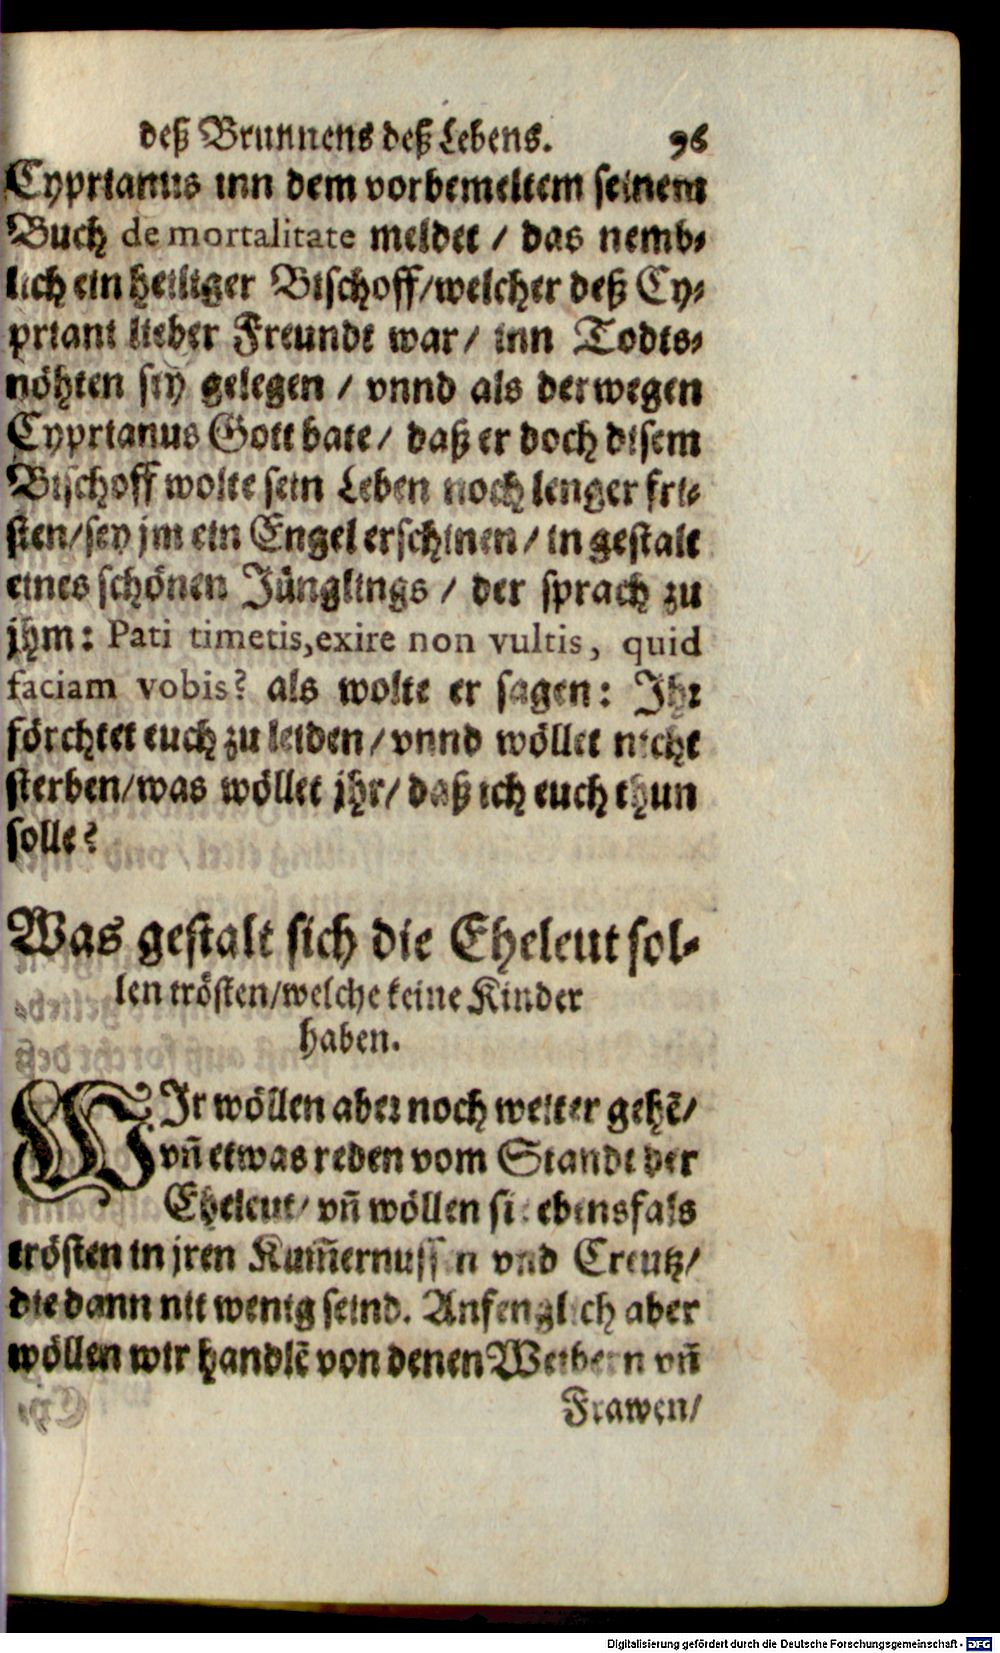 deß Brunnens deß Lebens. 96
Cyprianus inn dem vorbemeltem seinem
Buch de mortalitate meldet / das nemb-
lich ein heiliger Bischoff/welcher deß Cy-
priani lieber Freundt war/ inn Todts-
nöhten sey gelegen / vnnd als derwegen
Cyprianus Gott bate/ daß er doch disem
Bischoff wolte sein Leben noch lenger fri-
sten/sey jm ein Engel erschinen/ in gestalt
eines schönen Jünglings / der sprach zu
jhm: Pati timetis,exire non vultis, quid
faciam vobis? als wolte er sagen: Ihr
förchtet euch zu leiden/vnnd wöllet nicht
sterben/was wöllet jhr/ daß ich euch thun
solle?
Was gestalt sich die Eheleut sol-
len trösten/welche keine Kinder
haben.
WIr wöllen aber noch weiter gehē/
vñ etwas reden vom Standt der
Eheleut/ vñ wöllen sie ebensfals
trösten in jren Kum̃ernussen vnd Creutz/
die dann nit wenig seind. Anfenglich aber
wöllen wir handlē von denen Weibern vñ
Frawen/
Digitalisierung gefördert durch die Deutsche Forschungsgemeinschaft - DFG